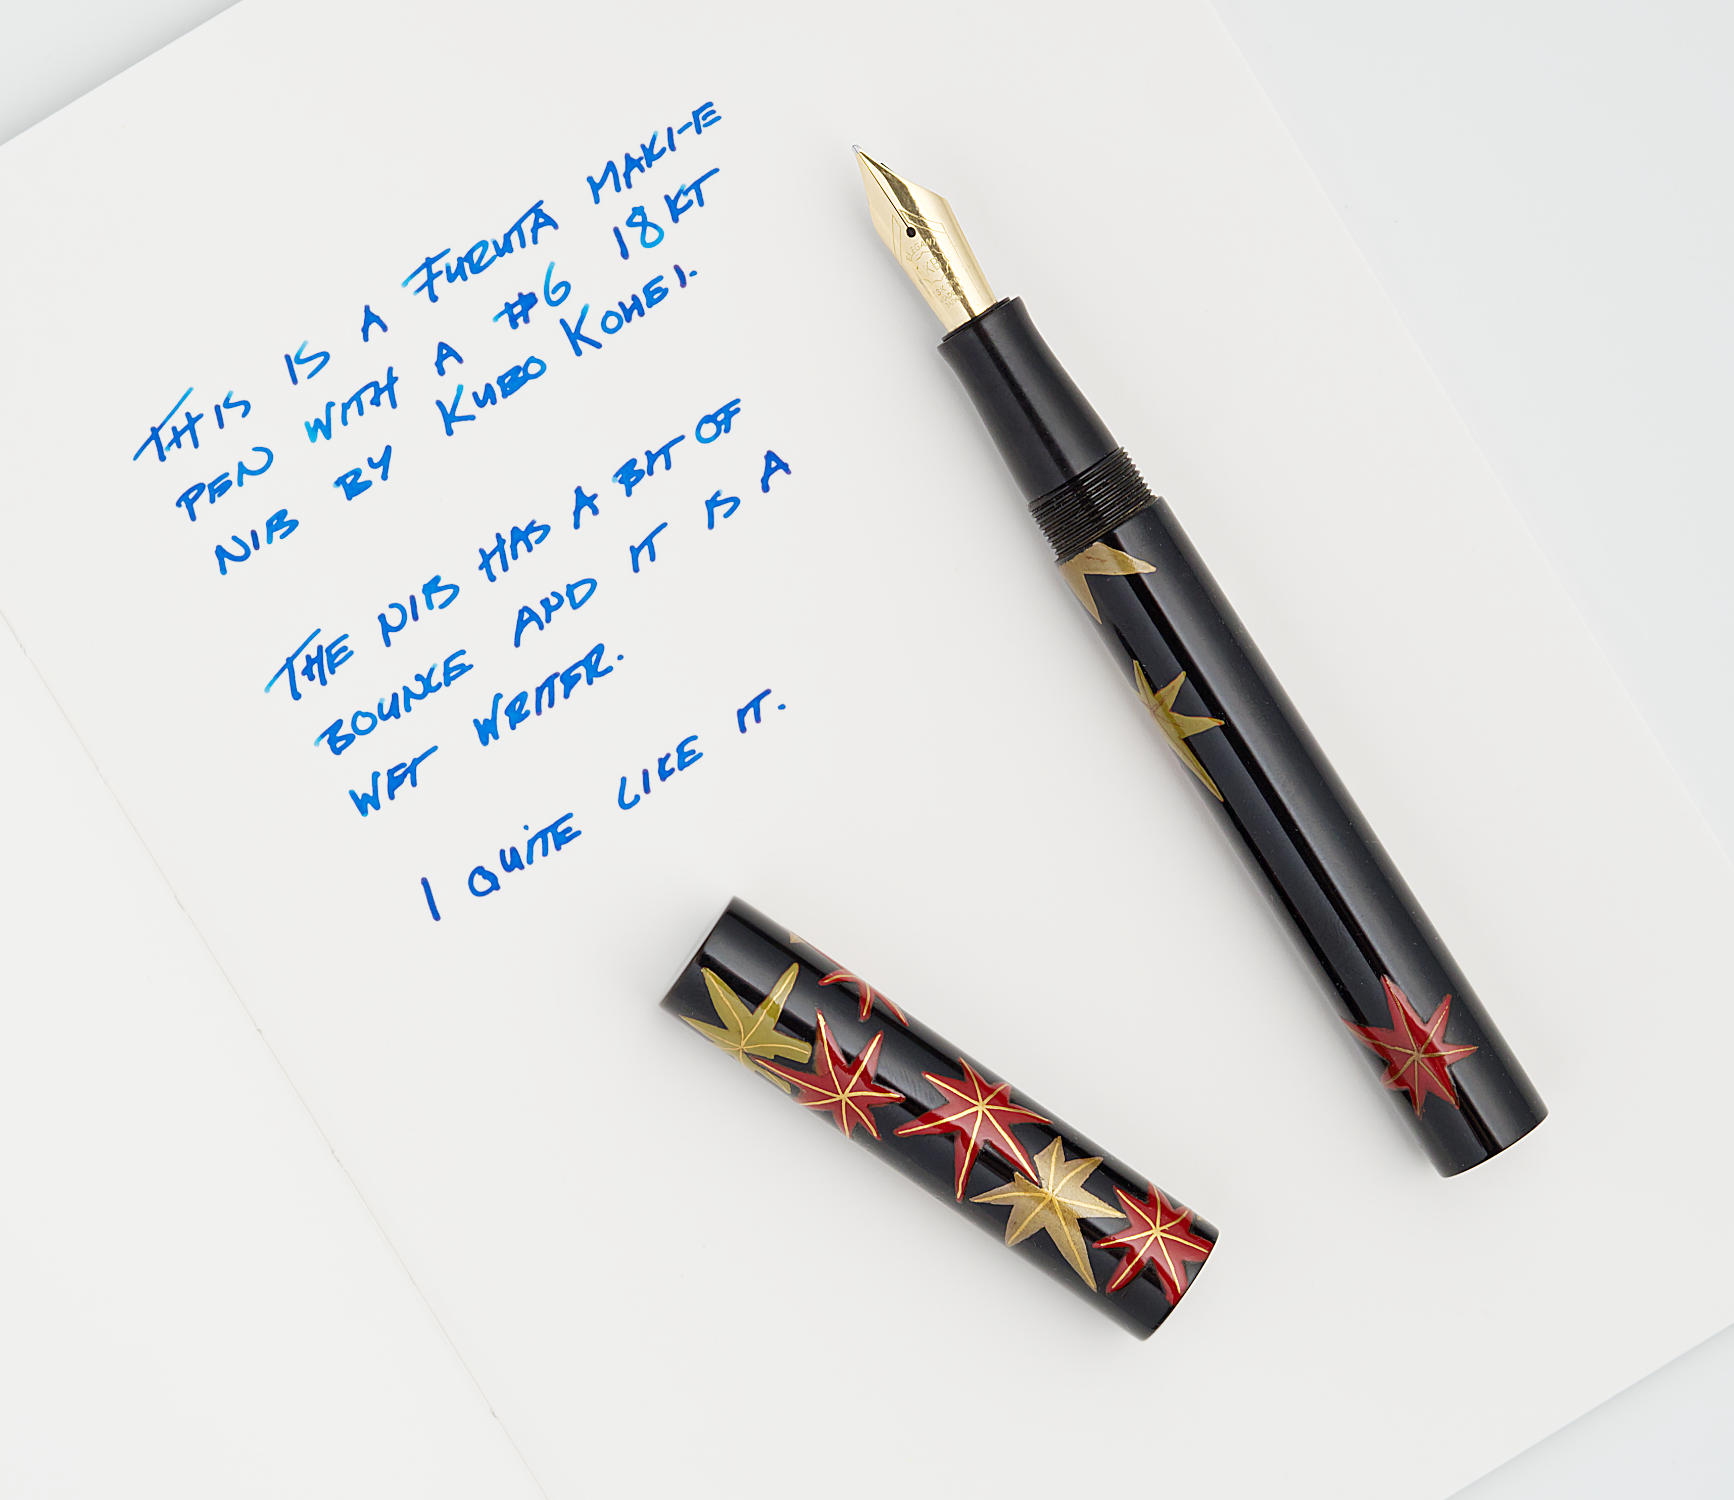 THIS IS A FURUTA MAKI-E
PEN WITH A #6 18KT
NIB BY KUBO KOHEI.
THE NIB HAS A BIT OF
BOUNCE AND IT IS A
WET WRITER.
I QUITE LIKE IT.